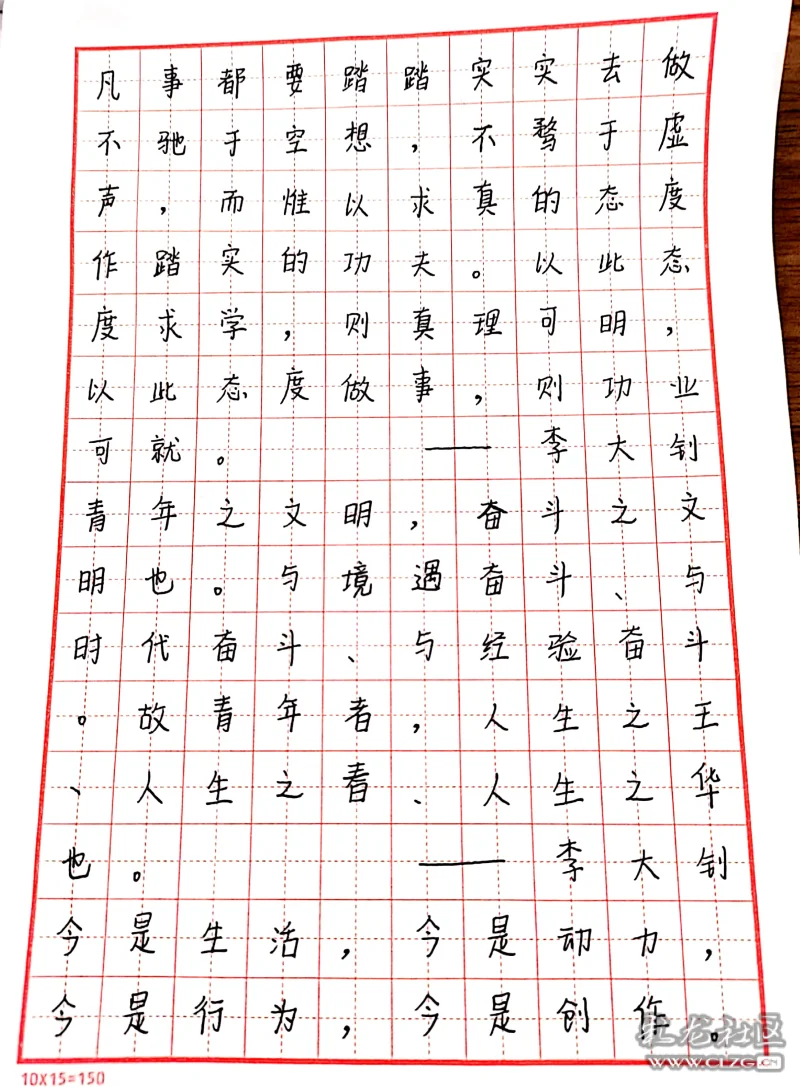 凡事都要踏踏实实去做
不驰于空想，不骛于虚
声，而惟以求真的态度
作踏实的功夫。以此态
度求学，则真理可明，
以此态度做事，则功业
可就。——李大钊
青年之文明，奋斗之文
明也。与境遇奋斗、与
时代奋斗、与经验奋斗
。故青年者，人生之王
、人生之春、人生之华
也。——李大钊
今是生活，今是动力，
今是行为，今是创作。
10X15=150
红龙社区
WWW.CLZG.CN